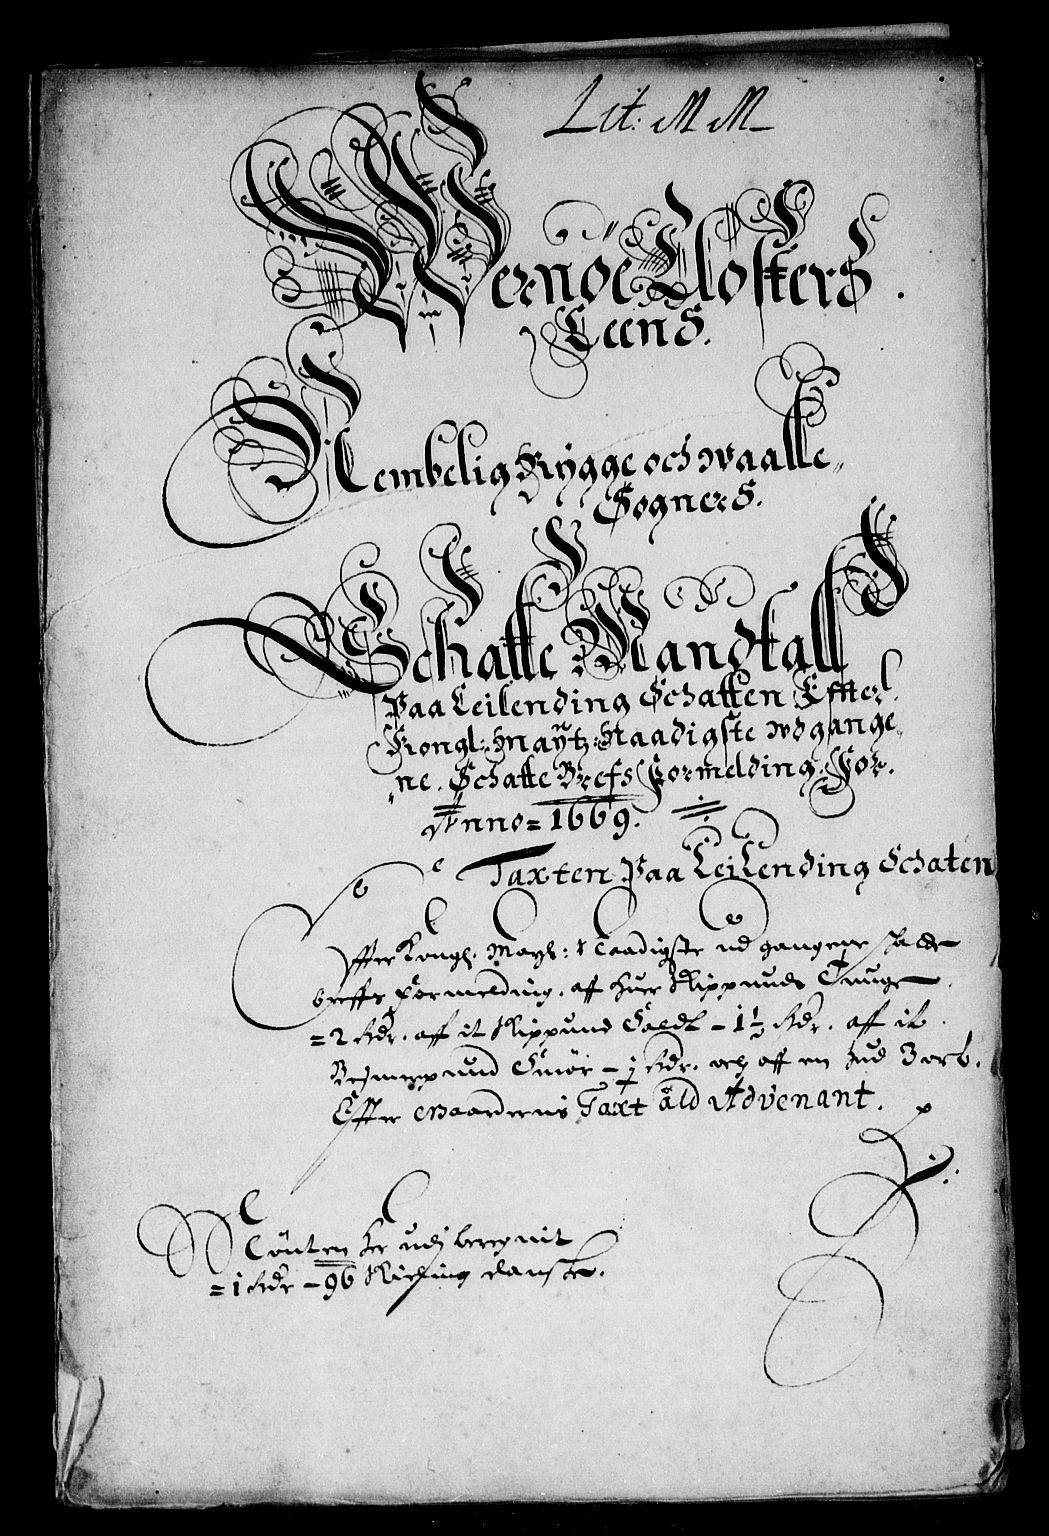 Lit: M M
Wernöe Closters
Leens.
Nembelig Rygge och waalle
Sogners.
Schatte Mandtall
Paa Leilending Schatten Effter
Kongl: Maÿtz: Naadigste udgange
ne. Schatte Brefs Formelding. For.
Anno = 1669.
Taxten Paa Leilending Schaten
Effter Kongl. Mayt: Naadigste ud gangene schatte
breffs formelding. aff huer Skippund Tunge
= 2 Rdr. aff it Skippund Saedt - 1½ Rdr. aff it
Bismerpund Smör - ½ Rdr. och aff en hud 3 ort.
Effter Gaardernis Taxt áld Advenant.
Mönten er udj beregnit
= 1 Rdr - 96 Skilling danske.